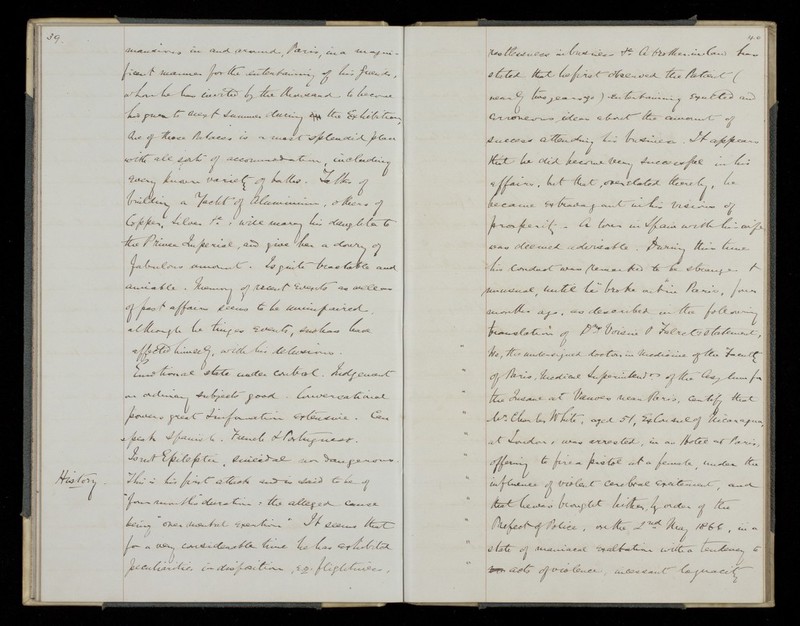 39.
mansions in and around Paris, in a magni-
ficent manner for the entertaining of his friends,
whom he has invited by the thousand to become
his guests next Summer during the Exhibition,
One of these Palaces is a most splendid place
with all sorts of accommodation, including
every known variety of baths. Talks of
building a Yacht of Aluminium, others of
Copper, Silver &c; will marry his daughter to
the Prince Imperial, and give her a dowry of
fabulous amount. Is quite tractable and
amiable. Memory of recent events as well as
of past affairs seems to be unimpaired,
although he tinges events, such as have
affected himself, with his delusions.
Emotional state under control. Judgement
on ordinary subjects good. Conversational
powers great & information extensive. Can
speak Spanish, French & Portuguese.
Is not Epileptic, suicidal or dangerous.
History. This is his first attack and is said to be of
"four months" duration; the alleged cause
being "over mental exertion" It seems that
for a very considerable time he has exhibited
peculiarities in disposition, e.g. flightiness,
40
restlessness in business &c. A brother in law has
stated that he first observed the Patient (
nearly two years ago) entertaining exalted and
erroneous ideas about the amount of
success attending his business. It appears
that he did become very successful in his
affairs, but that, overelated thereby, he
became extravagant in his visions of
prosperity. A tour in Spain with his wife
was deemed advisable. During this time
his conduct was remarked to be strange &
unusual, until he broke out in Paris, four
months ago, as described in the following
translation of Drs Voisin & Falret's statement,
" We, the undersigned doctors in Medicine of the Faculty
" of Paris, Medical Superintendents of the Asylum for
" the Insane at Vanves near Paris, certify that
" Mr Charles White, aged 51, Ex Consul of Nicaragua
" at London; was arrested, in an Hotel at Paris,
" offering to fire a pistol at a female, under the
" influence of violent cerebral excitement, and
" that he was brought hither, by order of the
" Prefect of Police, on the 2nd May 1866, in a
" state of maniacal exaltation with a tendency to
" acts of violence, incessant loquacity